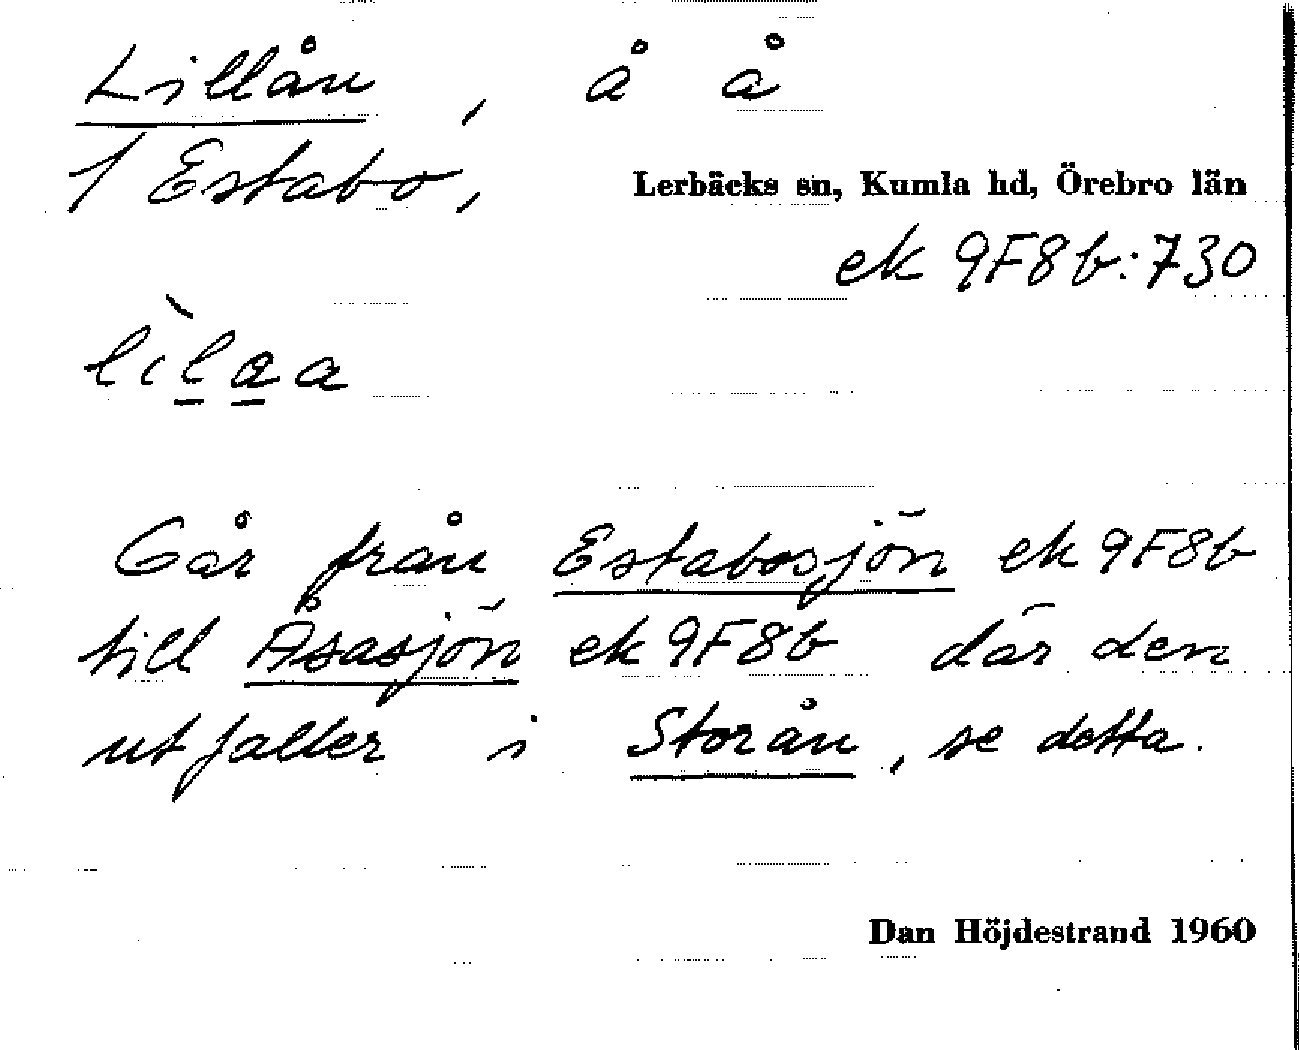 Lillån, å å
/ Estabo,
Lerbäcks sn, Kumla hd, Örebro län
ek 9F8b:730
Går från Estabosjön ek 9F8b
till Åsasjön ek 9F8b där den
utfaller i Storån, se detta.
Dan Höjdestrand 1960